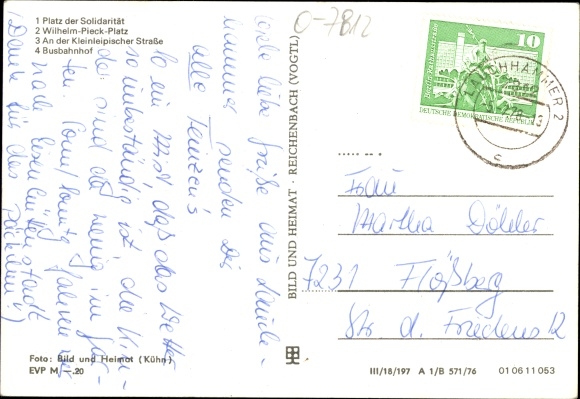 1 Platz der Solidarität
2 Wilhelm-Pieck-Platz
3 An der Kleinleipischer Straße
4 Busbahnhof
O-7812
Viele liebe Grüße aus Lauch-
hammer senden Dir
alle
So ein Mist, daß das Wetter
so unbeständig ist, die Kin-
der sind auf wenig im Gar-
ten. Sonnt fahren wir
nach
Danke für das
Päckchen!)
BILD UND HEIMAT · REICHENBACH (VOGTL)
Berlin, Rathausstraße
10
DEUTSCHE DEMOKRATISCHE REPUBLIK
LAUCHHAMMER 2
c
Frau
Martha Döhler
7231 Floßberg
Str d. Friedens 12
Foto: Bild und Heimat (Kühn)
EVP M —.20
III/18/197 A 1/B 571/76
01 06 11 053